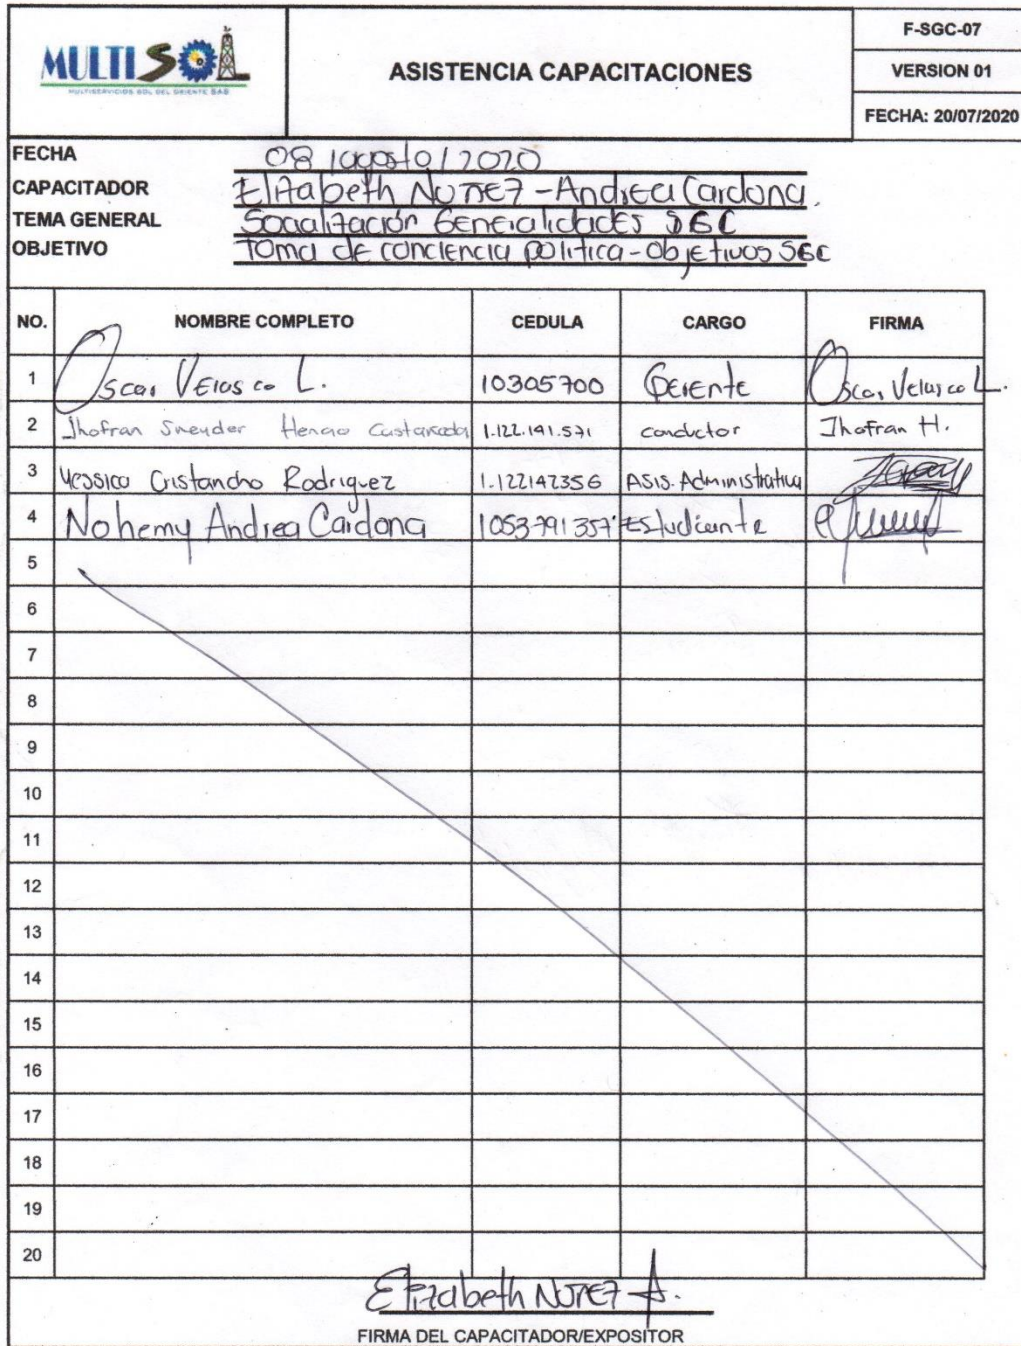 MULTISOL
MULTISERVICIOS SOL DEL ORIENTE SAS
ASISTENCIA CAPACITACIONES
F-SGC-07
VERSION 01
FECHA: 20/07/2020
FECHA 08/agosto/2020
CAPACITADOR Elizabeth NUÑEZ - Andrea Cardona.
TEMA GENERAL Socialización Generalidades SGC
OBJETIVO Toma de conciencia politica - Objetivos SGC
NO. NOMBRE COMPLETO CEDULA CARGO FIRMA
1 Oscar Velasco L. 10305700 Gerente Oscar Velasco L.
2 Jhofran Sneyder Henao 1.122.141.571 conductor Jhofran H.
3 Yessica Cristancho Rodriguez 1.122142356 Asis. Administrativa
4 Nohemy Andrea Cardona 1053791357 Estudiante
5
6
7
8
9
10
11
12
13
14
15
16
17
18
19
20
Elizabeth NUÑEZ A.
FIRMA DEL CAPACITADOR/EXPOSITOR